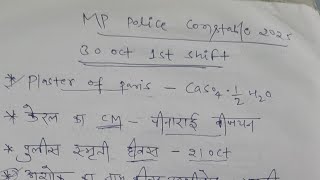 MP Police Constable 2025
30 oct 1st shift
* Plaster of paris - CaSO4 · 1/2 H2O
* केरल का CM - पीनाराई विजयन
* पुलीस स्मृती दिवस - 21 oct